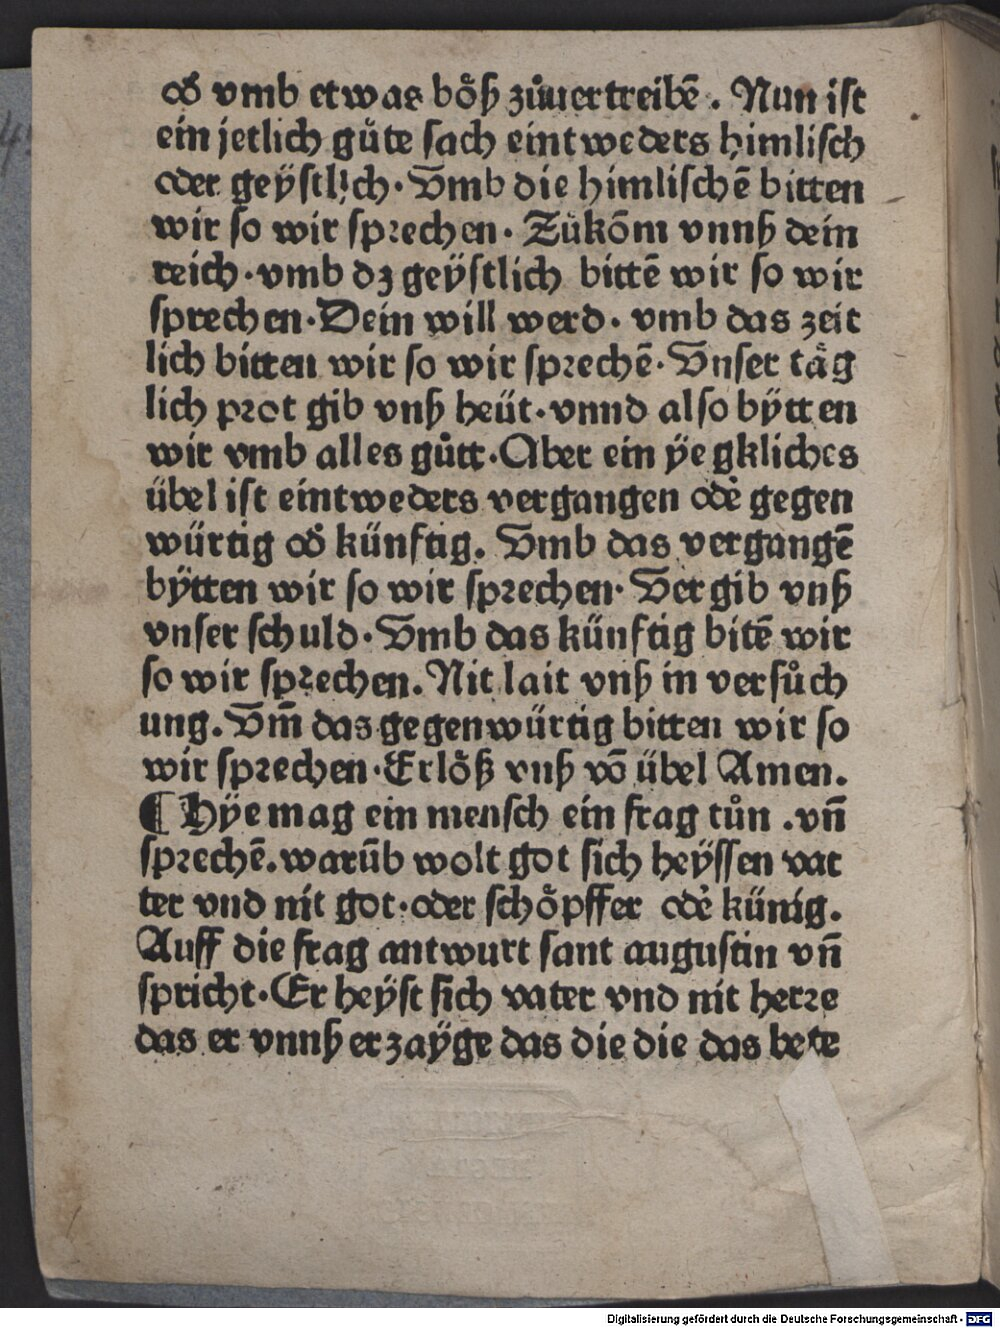 od̕ vmb etwas bo̊ß zůuertreibē . Nun ist
ein jetlich gůte sach eintweders himlisch
oder geÿstlich · Vmb die himlischē bitten
wir so wir sprechen · Zůkōm vnnß dein
reich · vmb dz geÿstlich bittē wir so wir
sprechen · Dein will werd · vmb das zeit
lich bitten wir so wir sprechē · Vnser täg
lich prot gib vnß heüt · vnnd also bÿtten
wir vmb alles gůtt · Aber ein ÿegkliches
übel ist eintweders vergangen od̕e gegen
würtig od̕ künftig. Vmb das vergangē
bÿtten wir so wir sprechen · Vergib vnß
vnser schuld · Vmb das künftig bitē wir
so wir sprechen. Nit lait vnß in versůch
ung. Vm̄ das gegenwürtig bitten wir so
wir sprechen · Erlo̊ß vnß vō übel Amen.
¶ Hÿe mag ein mensch ein frag tůn . vn̄
sprechē. warūb wolt got sich heÿssen vat
ter vnd nit got · oder scho̊pffer od̕e künig.
Auff die frag antwurt sant augustin vn̄
spricht · Er heÿst sich vater vnd nit herre
das er vnnß erzaÿge das die die das bete
Digitalisierung gefördert durch die Deutsche Forschungsgemeinschaft - DFG